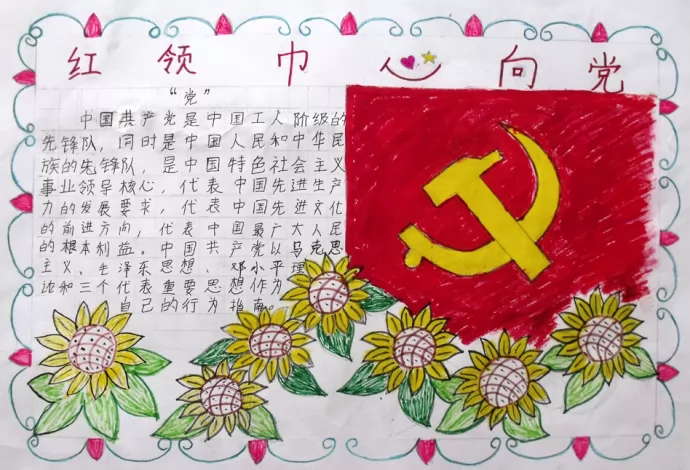 红领巾心向党
“党”
中国共产党是中国工人阶级的
先锋队，同时是中国人民和中华民
族的先锋队，是中国特色社会主义
事业领导核心，代表中国先进生产
力的发展要求，代表中国先进文化
的前进方向，代表中国最广大人民
的根本利益。中国共产党以马克思
主义、毛泽东思想、邓小平理
论和三个代表重要思想作为
自己的行为指南。